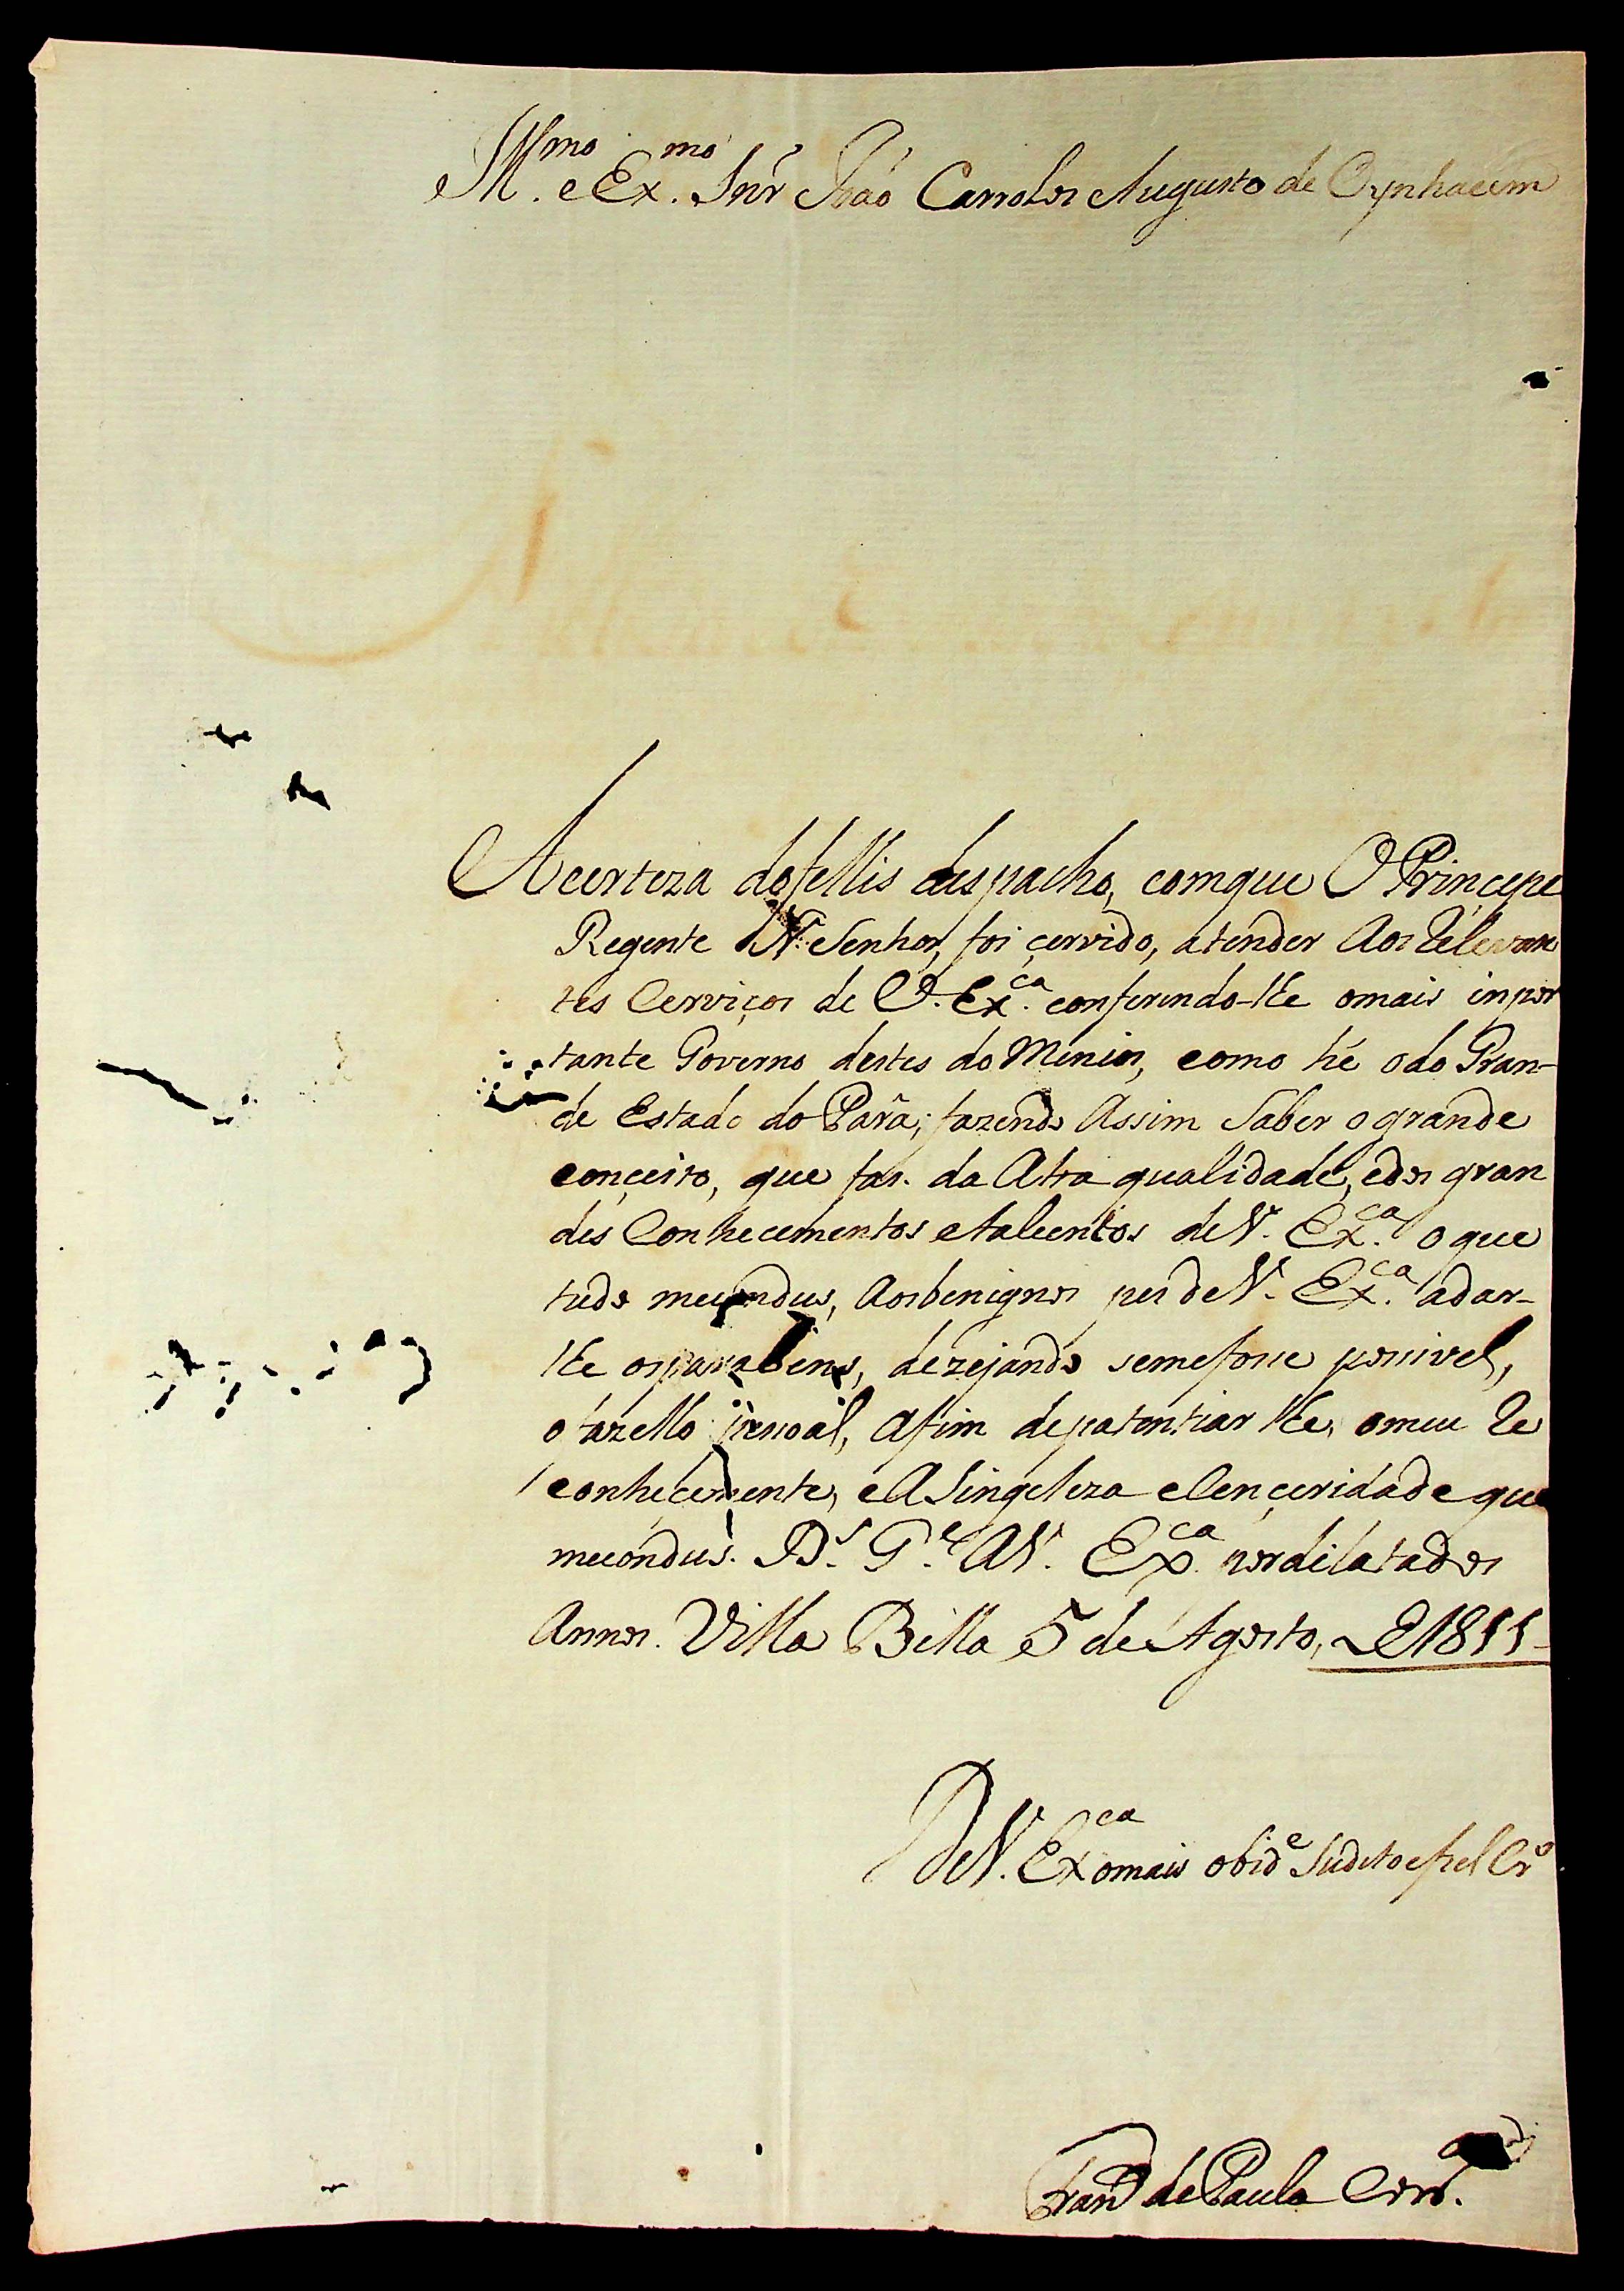 Ill.mo e Ex.mo Snr Joaõ Carrolos Augusto de Oynhaúem
A certeza do fellis despacho, comque O Princepe
Regente N. Senhor, foi çervido, atender Aos Relevan
tes Cerviços de V. Ex.ca conferindo-lhe omais inpor
tante Governo destes do Minios, como hé odo Gran-
de Estado do Parâ; fazendo Assim Saber o grande
conçeito, que fas. da Alta qualidade, edos gran
des Conhecementos etaleentos deV. Ex.ca o que
tudo mecondus, Aosbenignos pes deV. Ex.ca adar-
lhe osparabens, dezejando semefosse possivel,
o fazello pessoal, Afim depatentiar lhe, omeu Re
conheçemente, eA Singeleza eCençeridade que
mecondus. D.s G.e AV. Ex.ca pordilatados
Annos. Villa Bella 5 de Agosto, de 1811
DeV. Ex.ca omais obid.e Sudito efiel Cr.o
Fran.co de Paula Corr.a